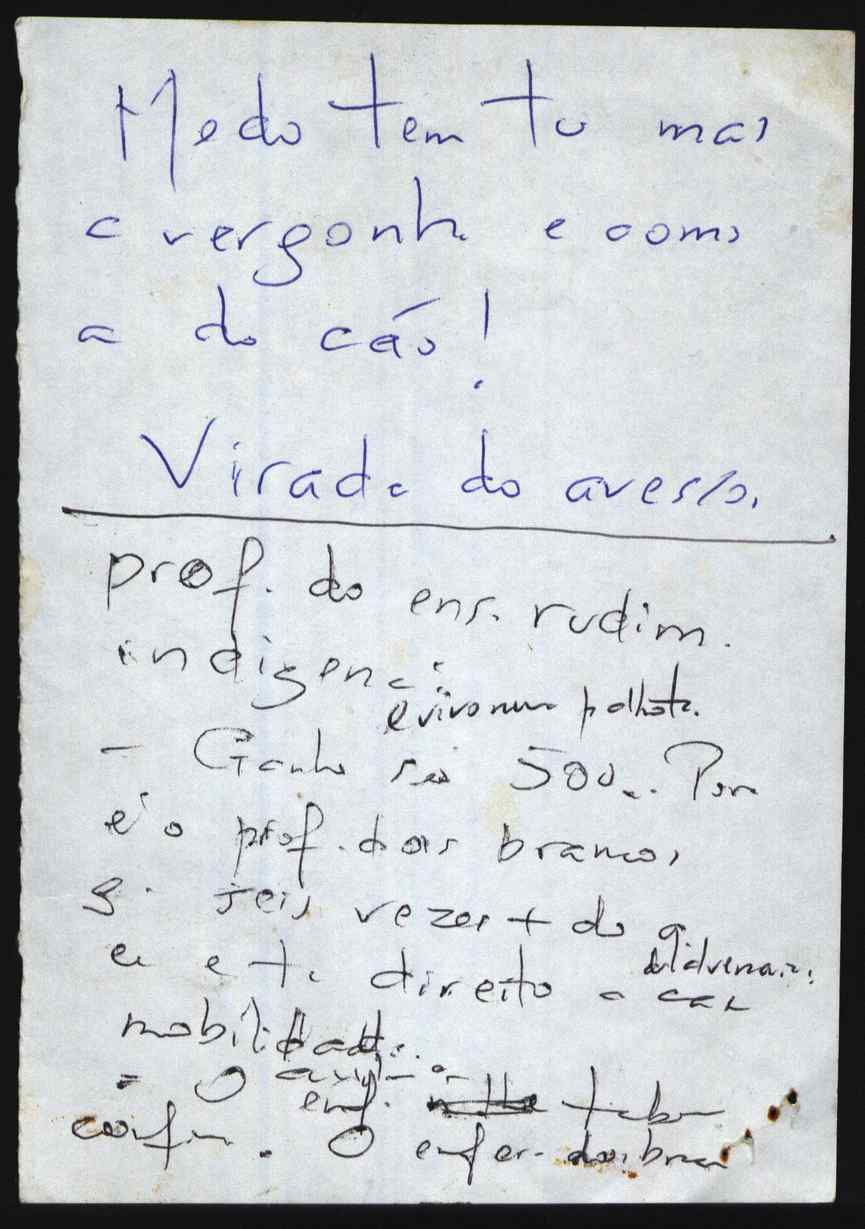 Medo tem tu mas
a vergonha e como
a do cão!
Virada do avesso.
prof. do ens. rudim.
indigena:
e vivo numa palhota.
- Ganho só 500.. Por
é o prof. dos brancos
seis vezes + do q
eu e t. direito a casa
mobilidade.
= O auxiliar
enf. tabem
confir. O enfer. dos bran